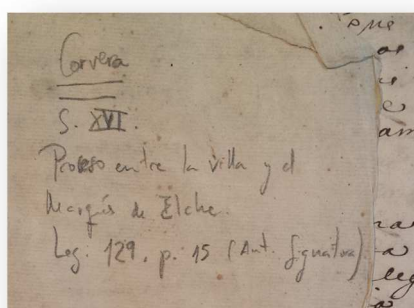 Corvera
S. XVI.
Proceso entre la villa y el
Marqués de Elche.
Leg. 129. p. 15 (Ant. Signatura)
que